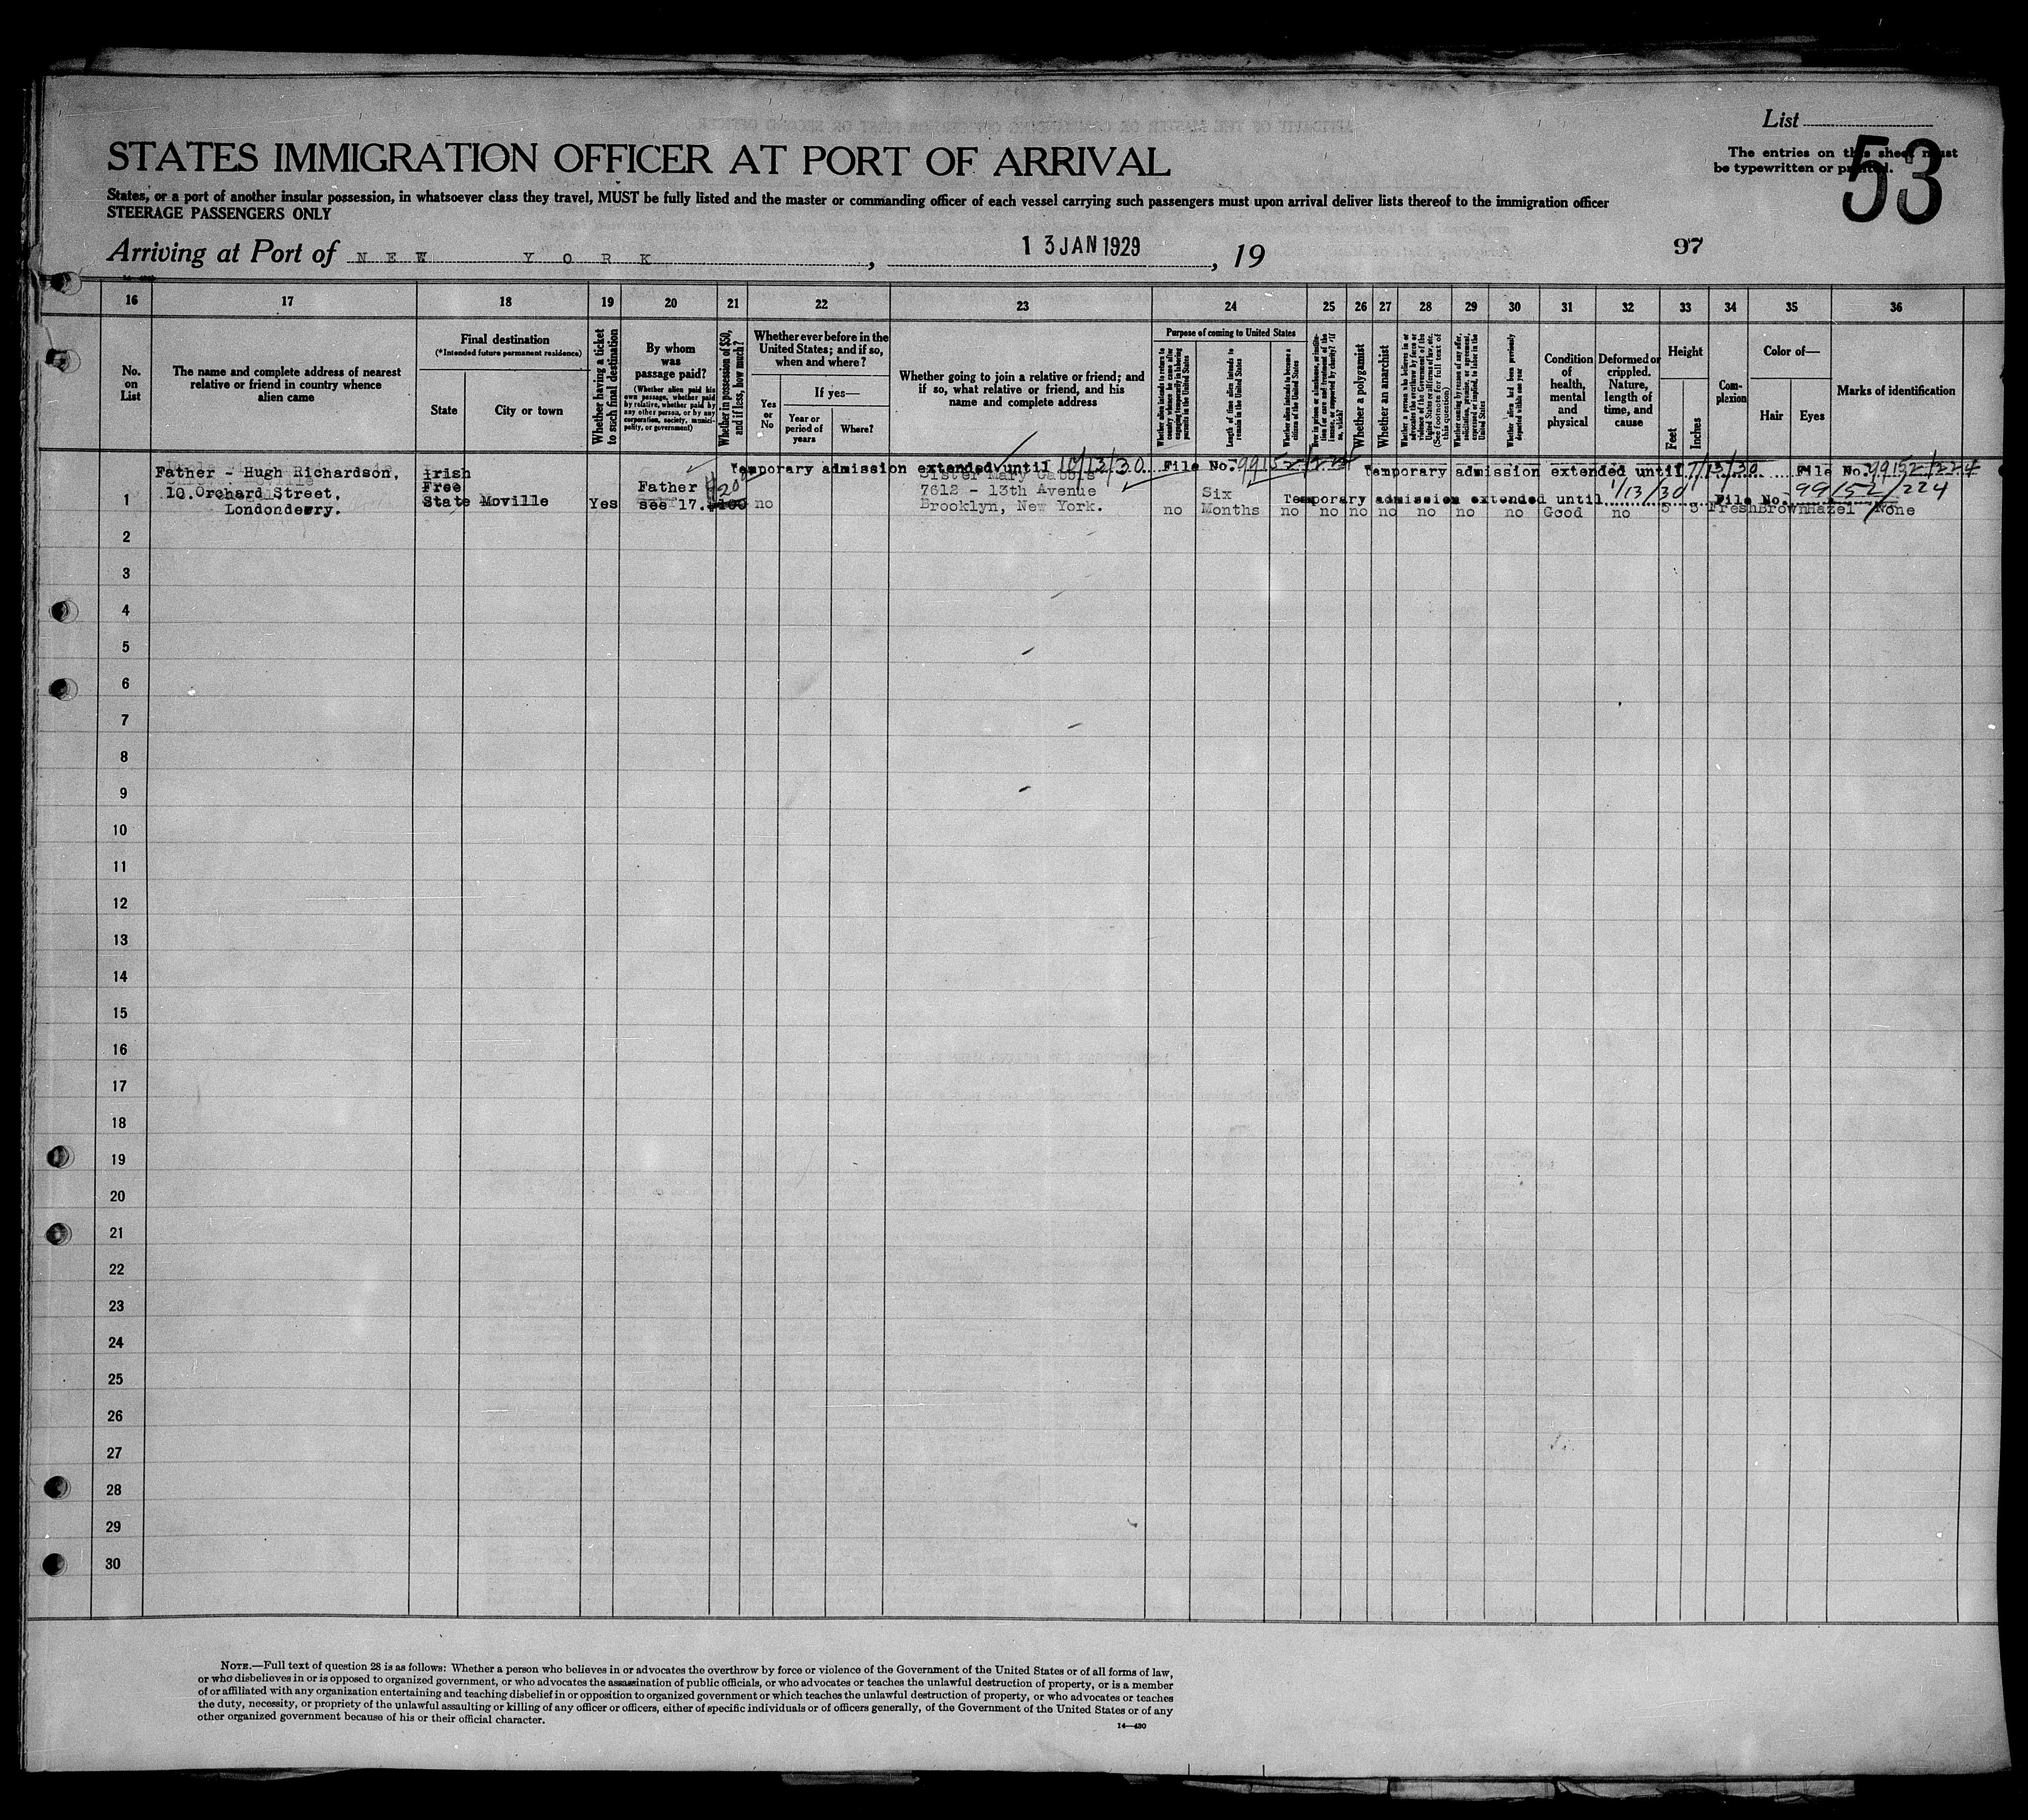 List
53
The entries on this sheet must
be typewritten or printed.
STATES IMMIGRATION OFFICER AT PORT OF ARRIVAL
States, or a port of another insular possession, in whatsoever class they travel, MUST be fully listed and the master or commanding officer of each vessel carrying such passengers must upon arrival deliver lists thereof to the immigration officer
STEERAGE PASSENGERS ONLY
Arriving at Port of NEW YORK, 13 JAN 1929, 19
97
16 17 18 19 20 21 22 23 24 25 26 27 28 29 30 31 32 33 34 35 36
No.
on
List
The name and complete address of nearest
relative or friend in country whence
alien came
Final destination
(*Intended future permanent residence)
State
City or town
Whether having a ticket
to such final destination
By whom
was
passage paid?
(Whether alien paid his
own passage, whether paid
by relative, whether paid by
any other person, or by any
corporation, society, munici-
pality, or government)
Whether in possession of $50,
and if less, how much?
Whether ever before in the
United States; and if so,
when and where?
Yes
or
No
If yes—
Year or
period of
years
Where?
Whether going to join a relative or friend; and
if so, what relative or friend, and his
name and complete address
Purpose of coming to United States
Whether alien intends to return to
country whence he came after
engaging temporarily in laboring
pursuits in the United States
Length of time alien intends to
remain in the United States
Whether alien intends to become a
citizen of the United States
Whether a polygamist
Whether an anarchist
(See footnote for full text of
this question)
Whether coming by reason of any offer,
solicitation, promise, or agreement,
expressed or implied, to labor in the
United States
Whether alien had been previously
deported within one year
Condition
of
health,
mental
and
physical
Deformed or
crippled.
Nature,
length of
time, and
cause
Height
Feet
Inches
Com-
plexion
Color of—
Hair
Eyes
Marks of identification
Temporary admission extended until 10/13/30 File No. 99152/224 Temporary admission extended until 7/13/30 File No. 99152/224
Temporary admission extended until 1/13/30 File No. 99152/224
1
Father - Hugh Richardson,
10.Orchard Street,
Londonderry.
Irish
Free
State
Moville
Yes
Father
see 17.
$200
$100
no
Sister Mary
7612 - 13th Avenue
Brooklyn, New York.
no
Six
Months
no no no no no no no Good no 5 3 Fresh Brown Hazel None
2
3
4
5
6
7
8
9
10
11
12
13
14
15
16
17
18
19
20
21
22
23
24
25
26
27
28
29
30
NOTE.—Full text of question 28 is as follows: Whether a person who believes in or advocates the overthrow by force or violence of the Government of the United States or of all forms of law,
or who disbelieves in or is opposed to organized government, or who advocates the assassination of public officials, or who advocates or teaches the unlawful destruction of property, or is a member
of or affiliated with any organization entertaining and teaching disbelief in or opposition to organized government or which teaches the unlawful destruction of property, or who advocates or teaches
the duty, necessity, or propriety of the unlawful assaulting or killing of any officer or officers, either of specific individuals or of officers generally, of the Government of the United States or of any
other organized government because of his or their official character.
14—430